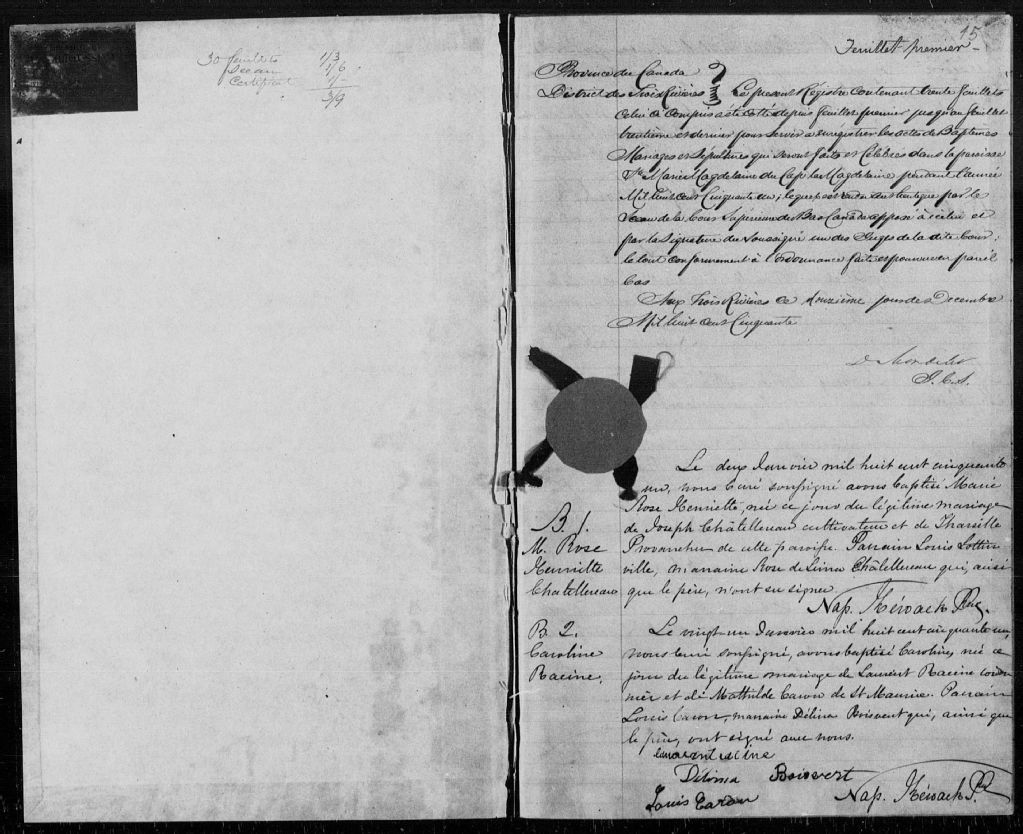 30 feuillets 1/3
Sceau 1/6
Certificat 1/-
3/9
15
Feuillet premier
Province du Canada
District des Trois Rivières } Le present Registre contenant trente feuillets
celui ci compris a été coté depuis feuillet premier jusqu'au feuillet
trentieme et dernier pour servir à enrégistrer les actes de Baptemes
Mariages et Sépultures qui seront faits et Célébrés dans la paroisse
Ste Marie Magdelaine du Cap la Magdelaine pendant l'année
Mil huit cent Cinquante un; lequel est rendu authentique par le
Sceau de la Cour Supérieure du Bas Canada apposé à celui ci
par la Signature du Soussigné un des Juges de la dite Cour;
le tout conformement à l'Ordonnance faite et pourvue en pareil
Cas
Aux Trois Rivières ce douzième jour de Decembre
Mil huit cent Cinquante
J.C.S.
Le deux Janvier mil huit cent cinquante
un, nous Curé soussigné avons baptisé Marie
Rose Henriette, née ce jour du légitime mariage
B. 1.
M. Rose
Henriette
Chatellereau
de Joseph Châtellereau cultivateur et de Tharsille
Provancher de cette paroisse. Parrain Louis Lottin
ville, marraine Rose de Lima Châtellereau qui, ainsi
que le père, n'ont su signer.
Nap. Kéroack Ptre.
B 2.
Caroline
Racine.
Le vingt-un Janvier mil huit cent cinquante un,
nous curé soussigné, avons baptisé Caroline, née ce
jour du légitime mariage de Laurent Racine cordon
nier et de Mathilde Caron de St Maurice. Parrain
Louis Caron, marraine Délina Boisvert qui, ainsi que
le père, ont signé avec nous.
laurent racine
Délima Boisvert
Louis Caron Nap. Kéroack Ptre